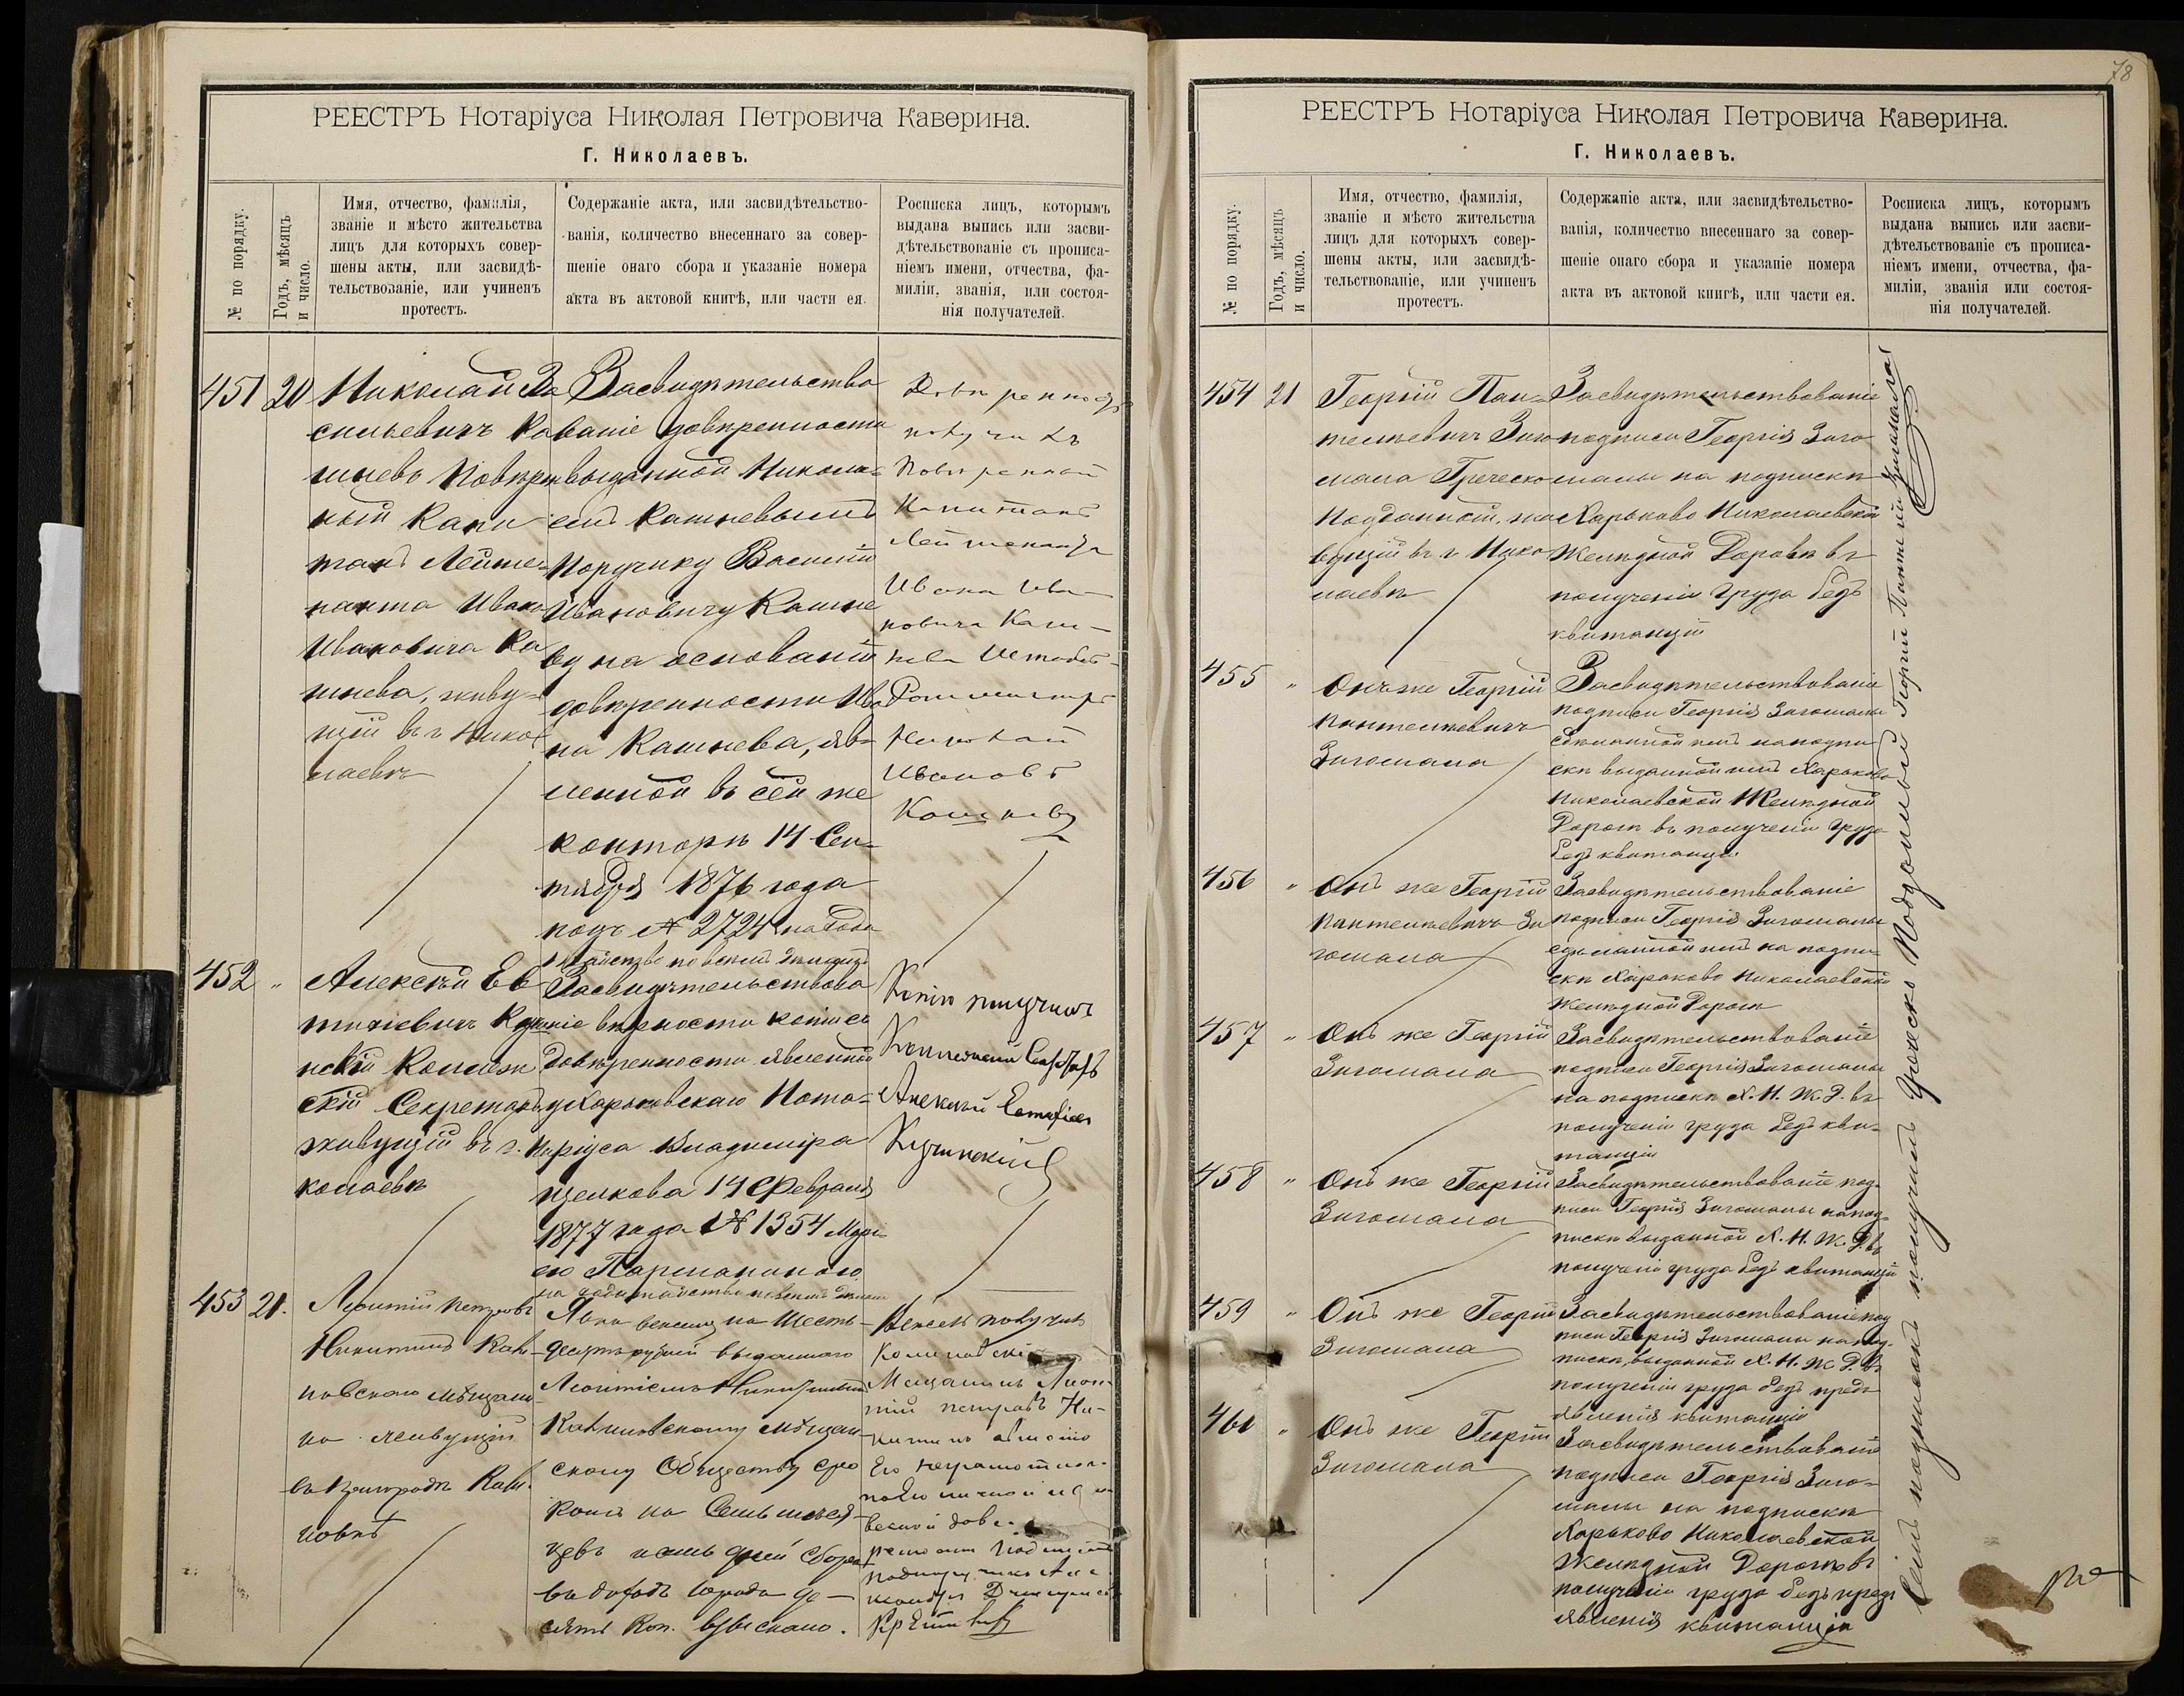 РЕЕСТРЪ Нотаріуса Николая Петровича Каверина.
Г. Николаевъ.
№ по порядку.
Годъ, мѣсяцъ
и число.
Имя, отчество, фамилія,
званіе и мѣсто жительства
лицъ для которыхъ совер-
шены акты, или засвидѣ-
тельствованіе, или учиненъ
протестъ.
Содержаніе акта, или засвидѣтельство-
ванія, количество внесеннаго за совер-
шеніе онаго сбора и указаніе номера
акта въ актовой книгѣ, или части ея.
Росписка лицъ, которымъ
выдана выпись или засви-
дѣтельствованіе съ прописа-
ніемъ имени, отчества, фа-
миліи, званія, или состоя-
нія получателей.
451
20
Николай Ва
сильевичъ Ка
шневъ Повѣрен
ный Капи
танъ Лейте-
нанта Ивана
Ивановича Ка
шнева, живу-
щій въ г Нико
лаевѣ
Засвидѣтельство
ваніе довѣренности
выданной Никола-
емъ Кашневымъ
Поручику Василій
Ивановичу Кашне
ву на основаніи
довѣренности Ива
на Кашнева, яв-
ленной въ сей же
конторѣ 14 Сен-
тября 1876 года
подъ № 2724
Довѣренность
получилъ
Повѣренный
Капитанъ
Лейтенанта
Ивана Ива-
новича Каш-
нева
Ротмистръ
Николай
Ивановъ
Кашневъ
452
"
Алексѣй Ев
стафіевичъ Ку
Коллеж
скій Секретарь
живущій въ г. Ни
колаевѣ
Засвидѣтельствова
ніе вѣрности копіи съ
довѣренности явленной
у Харьковскаго Нота-
ріуса Владиміра
Щелкова 14 Февраля
1877 года № 1354
Копію получилъ
Коллежскій Секретарь
Алексѣй Евстафіевъ
453
21.
Леонтій Петровъ
Никитинъ
мѣщани-
на живущій
Явка векселя на Шесть-
десятъ рублей выданнаго
Леонтіемъ Никитинымъ
мѣщан-
скому Обществу сро
комъ на Семь мѣся
цевъ
въ доходъ города де-
сять Коп. взыскано.
Вексель получилъ
Мѣщанинъ Леон-
тій Петровъ Ни-
китинъ а вмѣсто
Его неграмотнаго
РЕЕСТРЪ Нотаріуса Николая Петровича Каверина.
Г. Николаевъ.
78
№ по порядку.
Годъ, мѣсяцъ
и число.
Имя, отчество, фамилія,
званіе и мѣсто жительства
лицъ для которыхъ совер-
шены акты, или засвидѣ-
тельствованіе, или учиненъ
протестъ.
Содержаніе акта, или засвидѣтельство-
ванія, количество внесеннаго за совер-
шеніе онаго сбора и указаніе номера
акта въ актовой книгѣ, или части ея.
Росписка лицъ, которымъ
выдана выпись или засви-
дѣтельствованіе съ прописа-
ніемъ имени, отчества, фа-
миліи, званія или состоя-
нія получателей.
454
21
Георгій Пан-
телѣевичъ Зиго
мала Греческо
Подданный, жи
вущій въ г Нико
лаевѣ
Засвидѣтельствованіе
подписи Георгія Зиго
малы на подпискѣ
Харьково Николаевской
Желѣзной Дорогѣ въ
полученіи груза безъ
квитанціи
455
"
Онъ же Георгій
Пантелѣевичъ
Зигомала
Засвидѣтельствованіе
подписи Георгія Зигомалы
сдѣланной имъ на подпи
скѣ выданной имъ Харьково
Николаевской Желѣзной
Дорогѣ въ полученіи груза
безъ квитанціи
456
"
Онъ же Георгій
Пантелѣевичъ Зи
гомала
Засвидѣтельствованіе
подписи Георгія Зигомалы
сдѣланной имъ на подпи-
скѣ Харьково Николаевской
Желѣзной Дорогѣ
457
"
Онъ же Георгій
Зигомала
Засвидѣтельствованіе
подписи Георгія Зигомалы
на подпискѣ Х. Н. Ж. Д. въ
полученіи груза безъ кви-
танціи
458
"
Онъ же Георгій
Зигомала
Засвидѣтельствованіе под-
писи Георгія Зигомалы на под-
пискѣ выданной Х. Н. Ж. Д. въ
полученіи груза безъ квитанціи
459
"
Онъ же Георгій
Зигомала
Засвидѣтельствованіе под
писи Георгія Зигомалы на под-
пискѣ, выданной Х. Н. Ж. Д. въ
полученіи груза безъ предъ
явленія квитанціи
460
"
Онъ же Георгій
Зигомала
Засвидѣтельствованіе
подписи Георгія Зиго-
малы на подпискѣ
Харьково Николаевской
Желѣзной Дорогѣ въ
полученіи груза безъ предъ
явленія квитанціи
Семь подписокъ получилъ Греческо Подданный Георгій Пантелѣй Зигомала